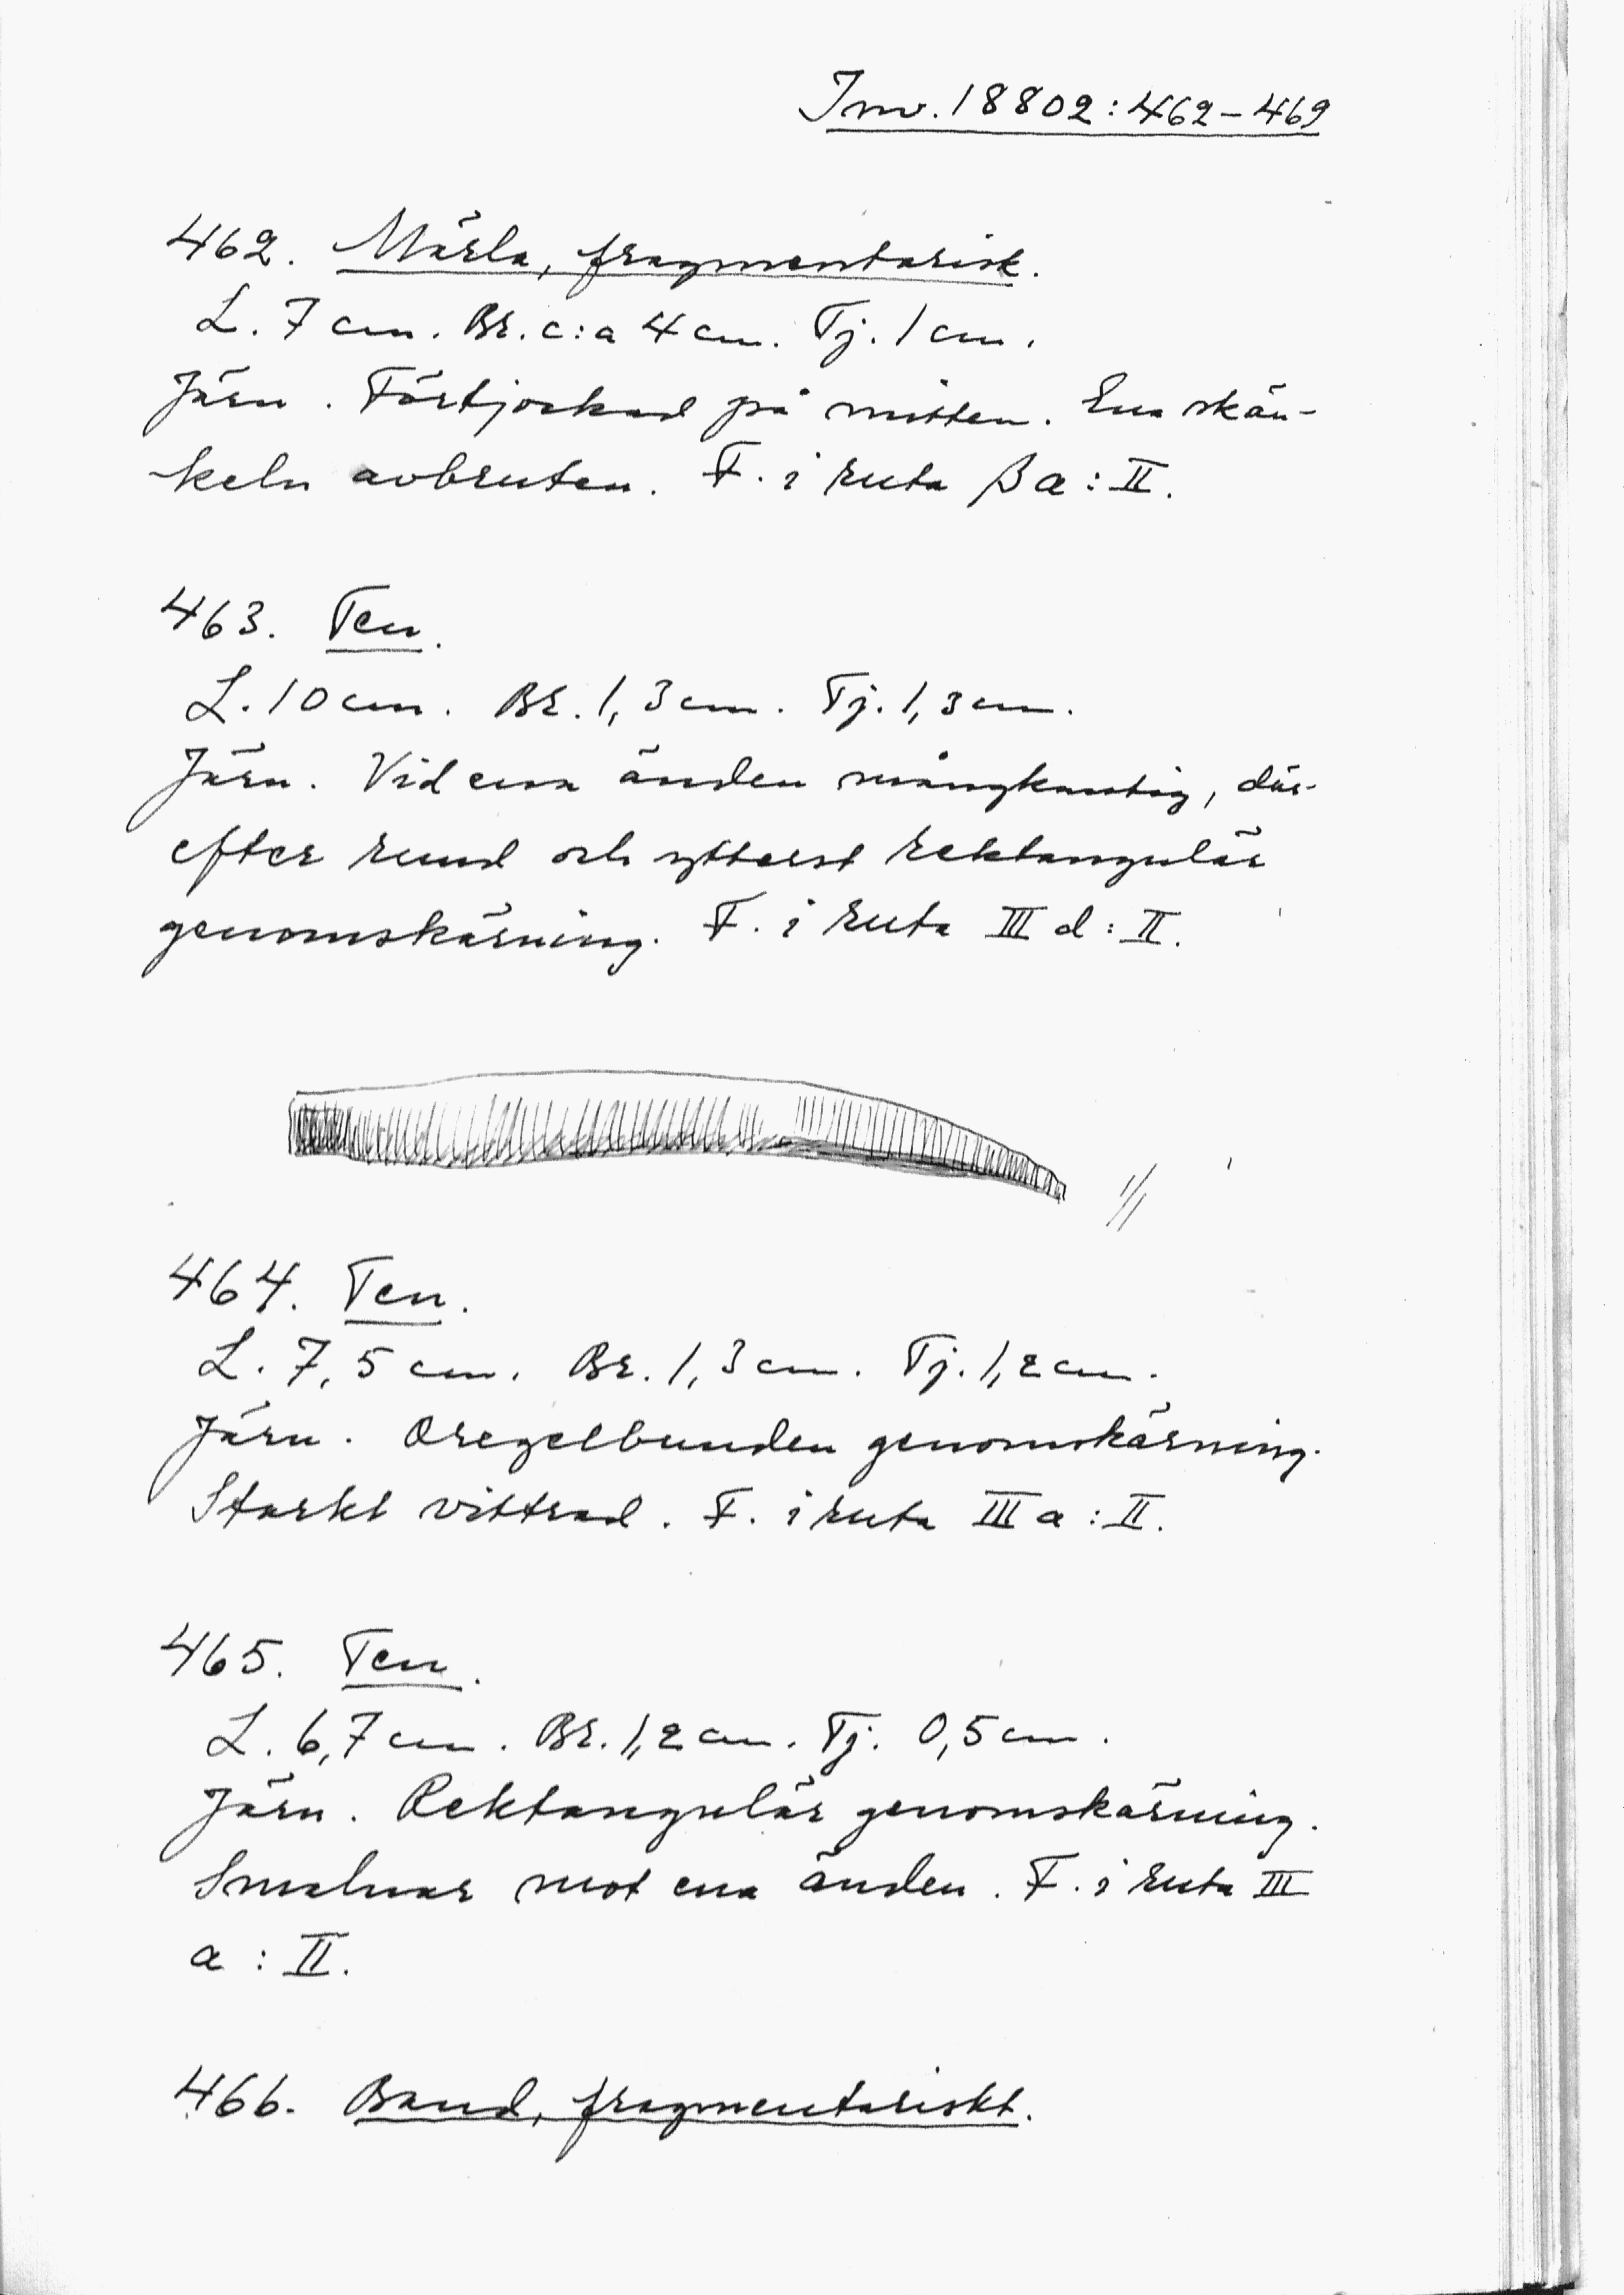 Inv. 18802:462-469
462. Märla, fragmentarisk.
L. 7 cm. Br. c:a 4 cm. Tj. 1 cm.
Järn. Förtjockad på mitten. Ena skän-
keln avbruten. F. i ruta β a : II.
463. Ten.
L. 10 cm. Br. 1,3 cm. Tj. 1,3 cm.
Järn. Vid ena änden mångkantig, där-
efter rund och ytterst rektangulär
genomskärning. F. i ruta III d : II.
1/1
464. Ten.
L. 7,5 cm. Br. 1,3 cm. Tj. 1,2 cm.
Järn. Oregelbunden genomskärning.
Starkt vittrad. F. i ruta III a : II.
465. Ten.
L. 6,7 cm. Br. 1,2 cm. Tj. 0,5 cm.
Järn. Rektangulär genomskärning.
Smalnar mot ena änden. F. i ruta III
a : II.
466. Band, fragmentariskt.